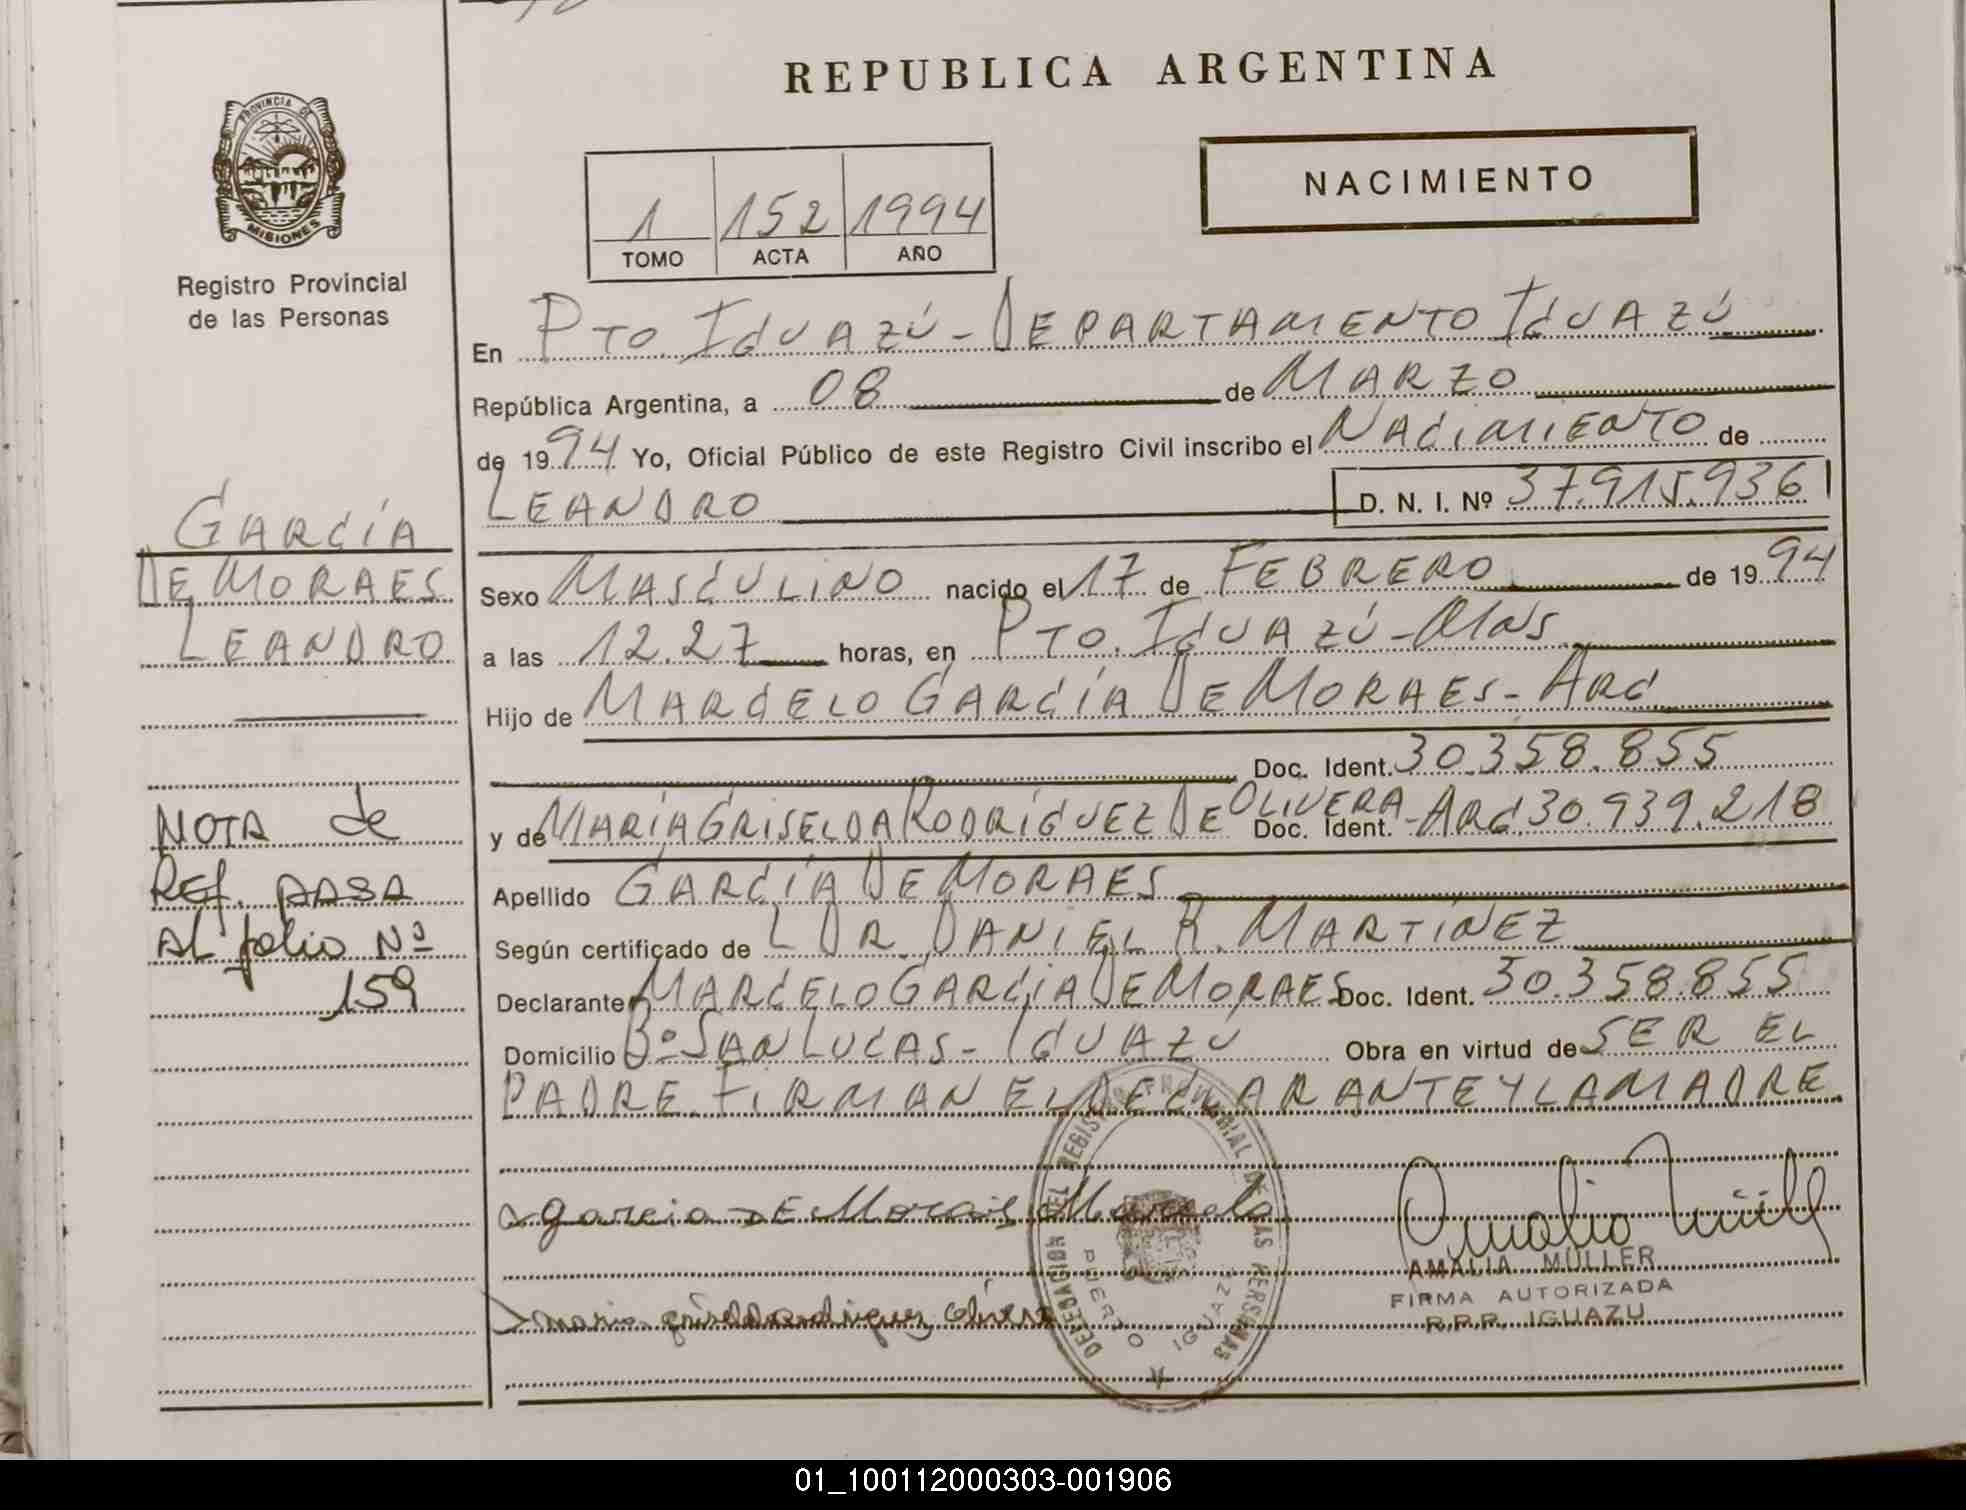 REPUBLICA ARGENTINA
PROVINCIA DE
MISIONES
Registro Provincial
de las Personas
NACIMIENTO
1 152 1994
TOMO ACTA AÑO
En PTO. IGUAZÚ - DEPARTAMENTO IGUAZÚ
República Argentina, a 08 de MARZO
de 1994 Yo, Oficial Público de este Registro Civil inscribo el NACIMIENTO de
LEANDRO D. N. I. Nº 37.915.936
GARCÍA
DE MORAES
LEANDRO
Sexo MASCULINO nacido el 17 de FEBRERO de 1994
a las 12.27 horas, en PTO. IGUAZÚ - MNS
Hijo de MARCELO GARCÍA DE MORAES - ARG
Doc. Ident. 30.358.855
y de MARÍA GRISELDA RODRÍGUEZ DE OLIVERA Doc. Ident. - ARG 30.939.218
Apellido GARCÍA DE MORAES
Según certificado de L DR. DANIEL R. MARTÍNEZ
Declarante MARCELO GARCÍA DE MORAES Doc. Ident. 30.358.855
Domicilio Bº SAN LUCAS - IGUAZÚ Obra en virtud de SER EL
PADRE. FIRMAN EL DECLARANTE Y LA MADRE.
NOTA de
REf. PASA
AL folio Nº
159
garcia DE Morais Marcelo
maria griselda rodriguez olivera
DELEGACION DEL REGISTRO PROVINCIAL DE LAS PERSONAS
PUERTO IGUAZU
Amalia Müller
AMALIA MÜLLER
FIRMA AUTORIZADA
R.P.P. IGUAZU
01_100112000303-001906